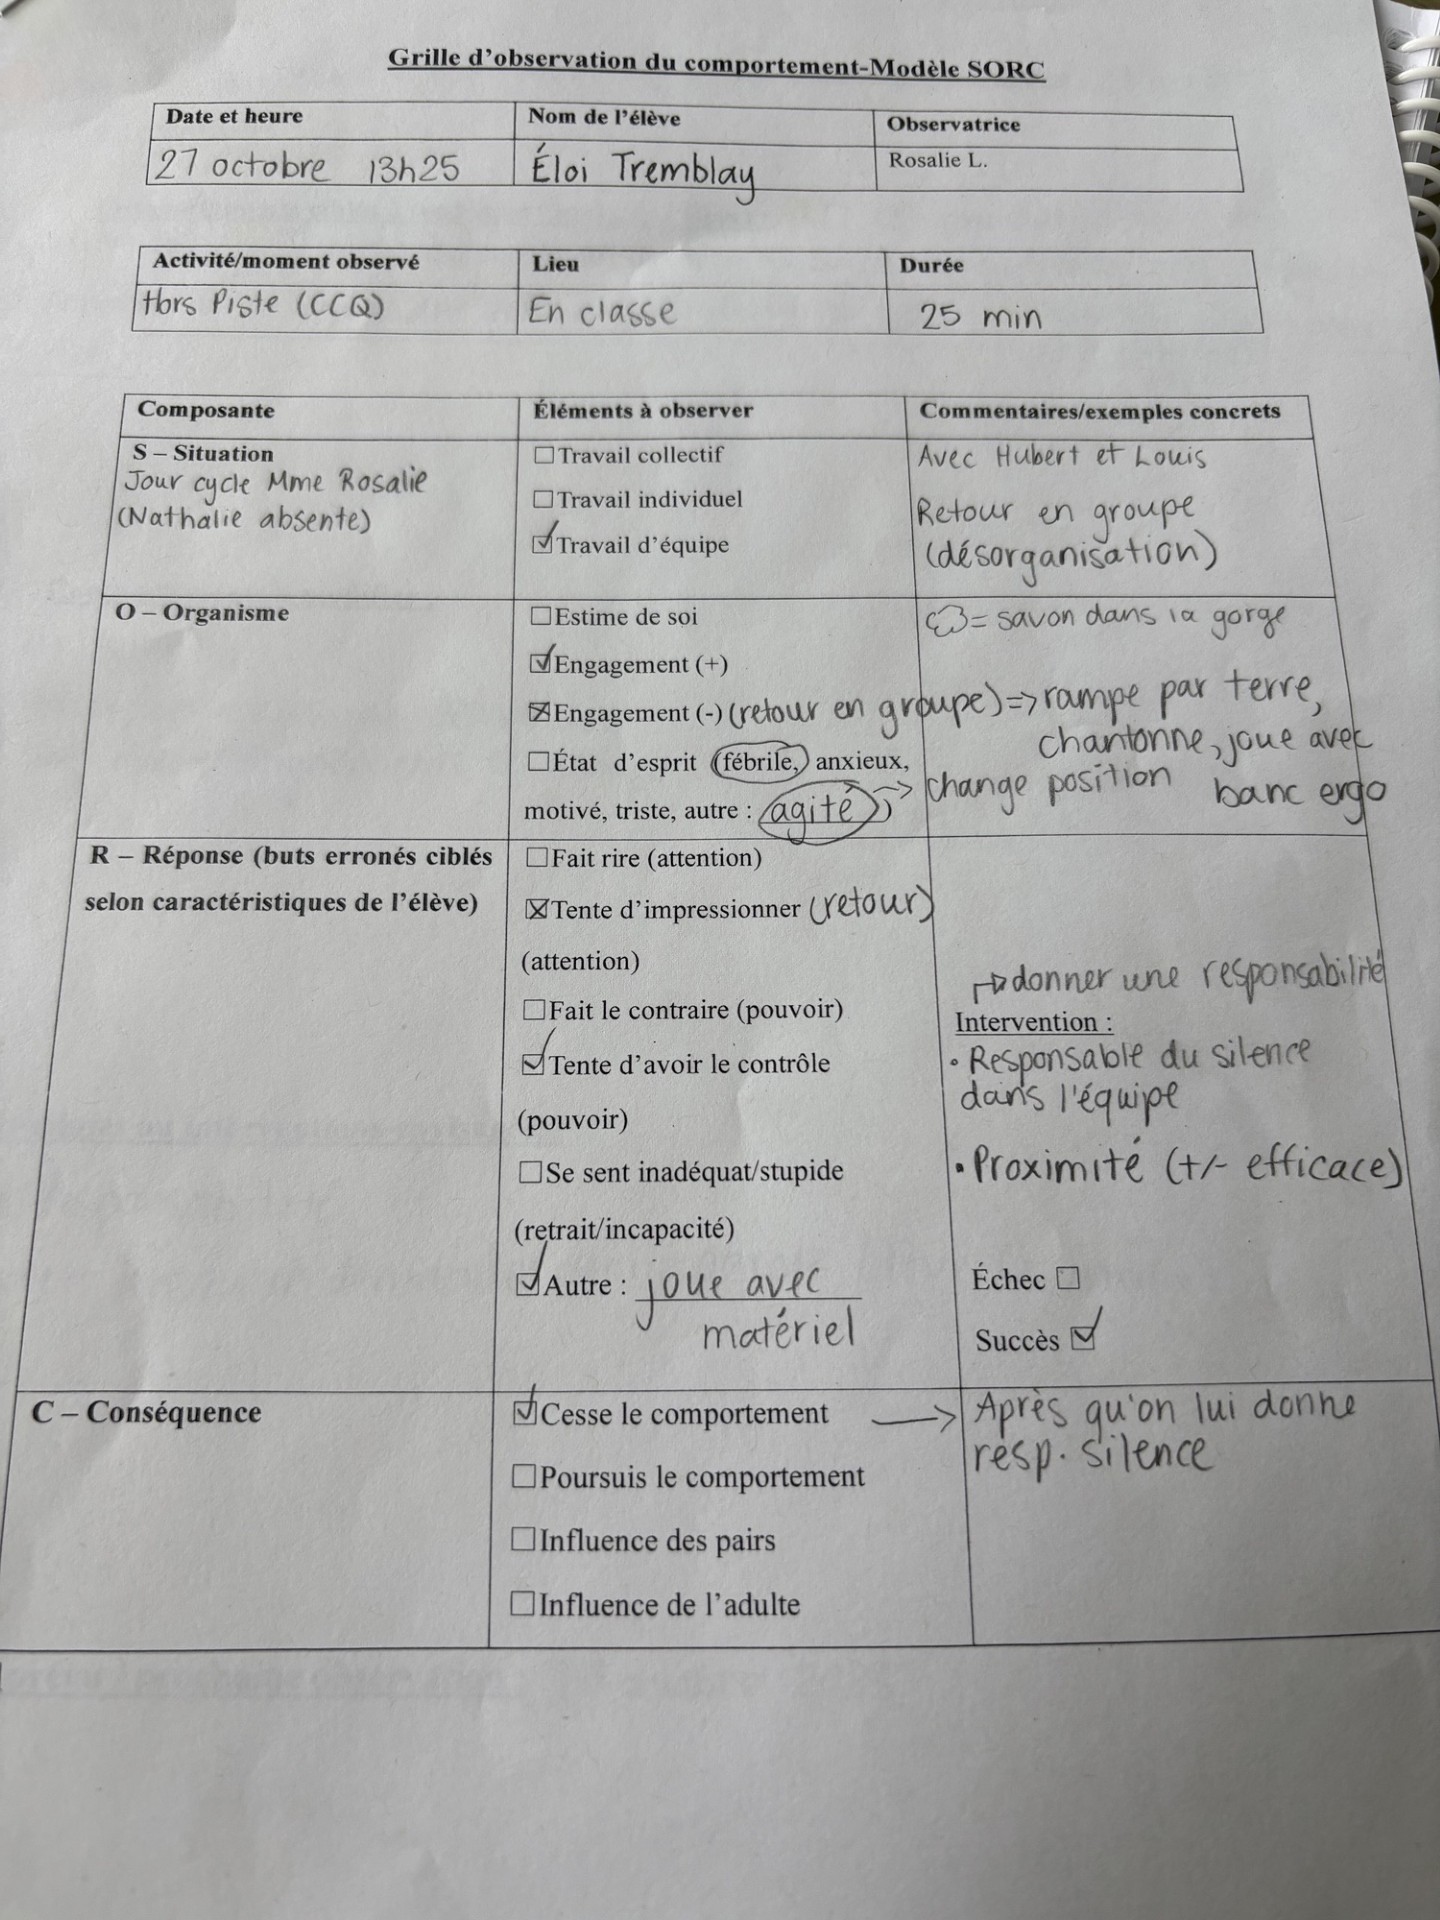 Grille d'observation du comportement-Modèle SORC
Date et heure
Nom de l'élève
Observatrice
27 octobre 13h25
Éloi Tremblay
Rosalie L.
Activité/moment observé
Lieu
Durée
Hors Piste (CCQ)
En classe
25 min
Composante
Éléments à observer
Commentaires/exemples concrets
S – Situation
Jour cycle Mme Rosalie
(Nathalie absente)
☐Travail collectif
☐Travail individuel
☑Travail d'équipe
Avec Hubert et Louis
Retour en groupe
(désorganisation)
O – Organisme
☐Estime de soi
☑Engagement (+)
☒Engagement (-) (retour en groupe) => rampe par terre,
chantonne, joue avec
banc ergo
☐État d'esprit (fébrile, anxieux,
motivé, triste, autre : agité )
→ change position
= savon dans la gorge
R – Réponse (buts erronés ciblés
selon caractéristiques de l'élève)
☐Fait rire (attention)
☒Tente d'impressionner (retour)
(attention)
☐Fait le contraire (pouvoir)
☑Tente d'avoir le contrôle
(pouvoir)
☐Se sent inadéquat/stupide
(retrait/incapacité)
☑Autre : joue avec
matériel
→ donner une responsabilité
Intervention :
• Responsable du silence
dans l'équipe
• Proximité (+/- efficace)
Échec ☐
Succès ☑
C – Conséquence
☑Cesse le comportement →
☐Poursuis le comportement
☐Influence des pairs
☐Influence de l'adulte
Après qu'on lui donne
resp. silence